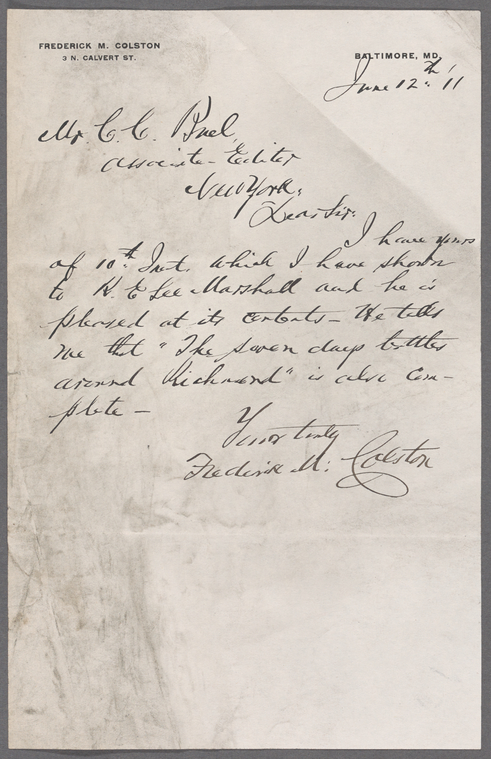 FREDERICK M. COLSTON
3 N. CALVERT ST.
BALTIMORE, MD.
June 12th '11
Mr. C. C. Buel,
Associate Editor
New York.
Dear Sir:
I have yours
of 10th Inst. which I have shown
to R. E Lee Marshall and he is
pleased at its contents - He tells
me that "The seven days battles
around Richmond" is also com-
plete -
Yours truly
Frederick M. Colston